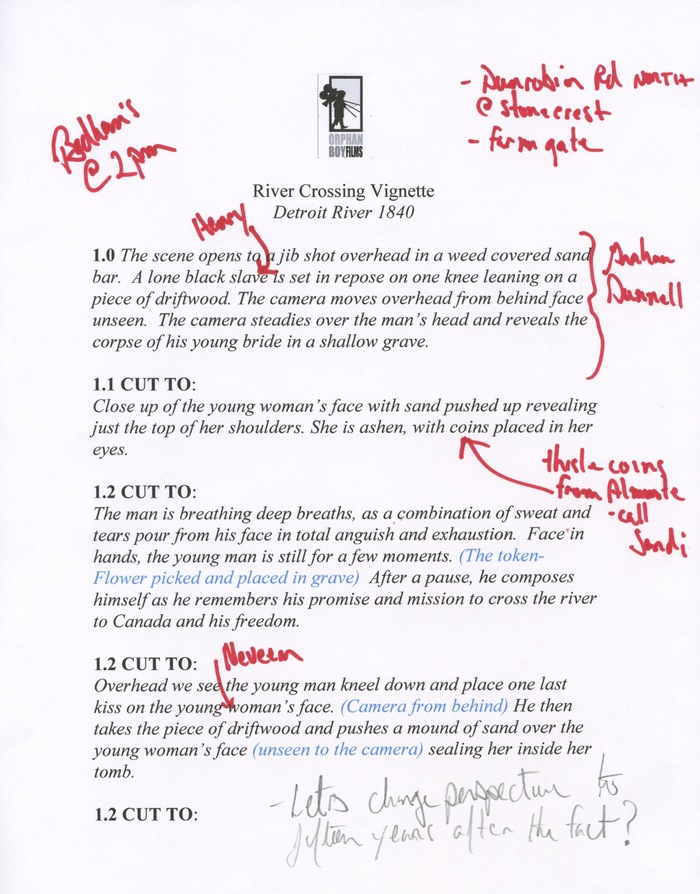 Bedham's
@ 2pm
- Dunrobin Rd NORTH
@ Stonecrest
- farm gate
ORPHAN
BOYFILMS
River Crossing Vignette
Detroit River 1840
Henry
1.0 The scene opens to a jib shot overhead in a weed covered sand
bar.  A lone black slave is set in repose on one knee leaning on a
piece of driftwood. The camera moves overhead from behind face
unseen.  The camera steadies over the man's head and reveals the
corpse of his young bride in a shallow grave.
Dunnell
1.1 CUT TO:
Close up of the young woman's face with sand pushed up revealing
just the top of her shoulders. She is ashen, with coins placed in her
eyes.
coins
from Almonte
- call
Sandi
1.2 CUT TO:
The man is breathing deep breaths, as a combination of sweat and
tears pour from his face in total anguish and exhaustion.  Face in
hands, the young man is still for a few moments. (The token-
Flower picked and placed in grave)  After a pause, he composes
himself as he remembers his promise and mission to cross the river
to Canada and his freedom.
1.2 CUT TO:
Neveen
Overhead we see the young man kneel down and place one last
kiss on the young woman's face. (Camera from behind) He then
takes the piece of driftwood and pushes a mound of sand over the
young woman's face (unseen to the camera) sealing her inside her
tomb.
1.2 CUT TO:
- Lets change perspective to
fifteen years after the fact?